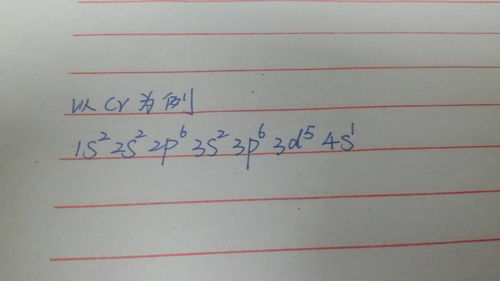 以Cr为例
1s² 2s² 2p⁶ 3s² 3p⁶ 3d⁵ 4s¹